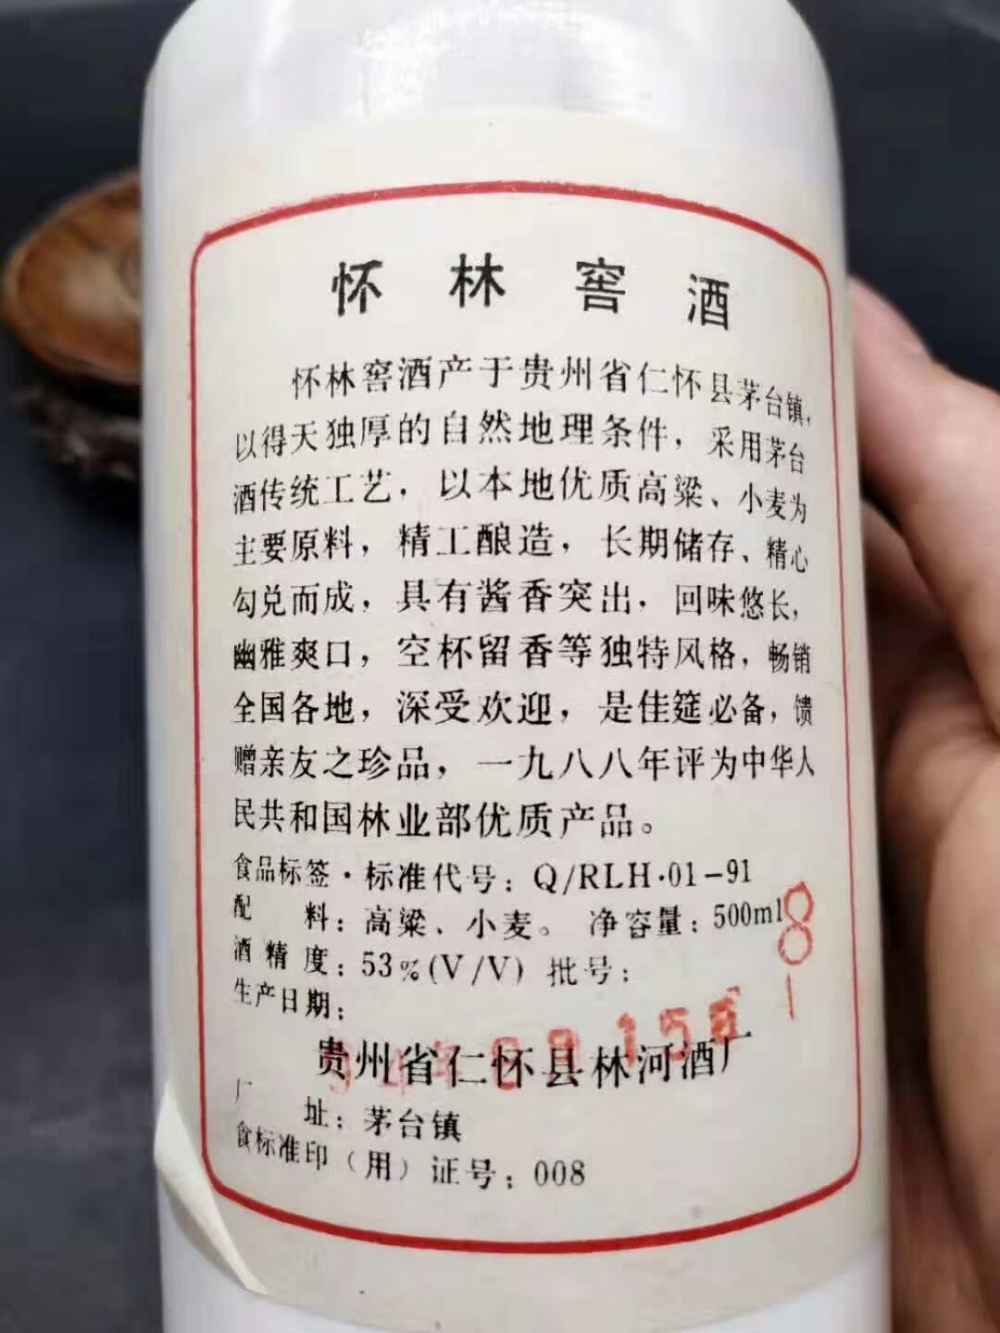 怀林窖酒
怀林窖酒产于贵州省仁怀县茅台镇，
以得天独厚的自然地理条件，采用茅台
酒传统工艺，以本地优质高粱、小麦为
主要原料，精工酿造，长期储存、精心
勾兑而成，具有酱香突出，回味悠长，
幽雅爽口，空杯留香等独特风格，畅销
全国各地，深受欢迎，是佳筵必备，馈
赠亲友之珍品，一九八八年评为中华人
民共和国林业部优质产品。
食品标签·标准代号：Q/RLH·01-91
配 料：高粱、小麦。 净容量：500ml
酒精度：53%(V/V) 批号：
生产日期：
贵州省仁怀县林河酒厂
厂 址：茅台镇
食标准印（用）证号：008